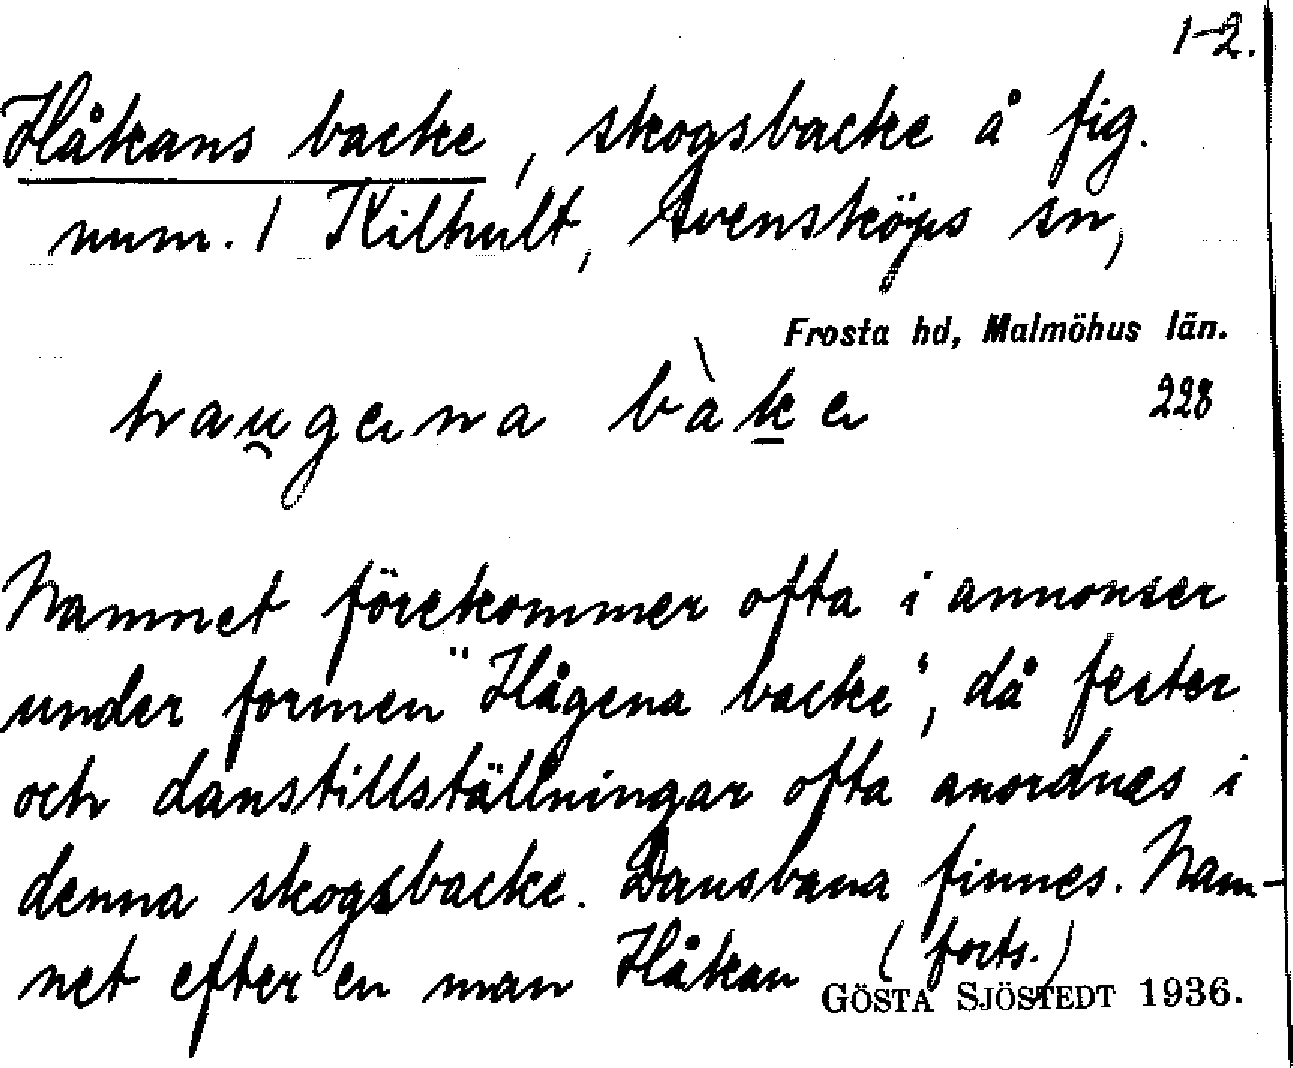 1-2.
Håkans backe, skogsbacke å fig.
num. 1 Kilhult, Svensköps sn,
Frosta hd, Malmöhus län.
hau̯gena bàk̲e
228
Namnet förekommer ofta i annonser
under formen "Hågena backe", då fester
och danstillställningar ofta anordnas i
denna skogsbacke. Dansbana finnes. Nam-
net efter en man Håkan (forts.)
GÖSTA SJÖSTEDT 1936.